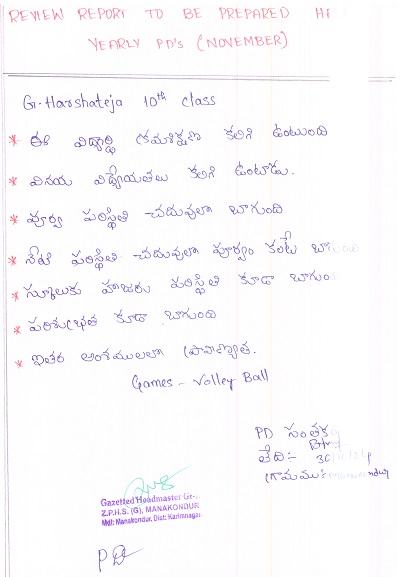 REVIEW REPORT TO BE PREPARED
YEARLY PD's (NOVEMBER)
G. Harshateja 10th class
* ఈ విద్యార్థి క్రమశిక్షణ కలిగి ఉంటుంది
* వినయ విధ్యేయతలు కలిగి ఉంటాడు.
* పూర్వ పరిస్థితి చదువులో బాగుంది
* నేటి పరిస్థితి చదువులో పూర్వం కంటే బాగుంది
* స్కూలుకు హాజరు పరిస్థితి కూడా బాగుం
* పరిశుభ్రత కూడా బాగుంది
* ఇతర అంశములలో ప్రావీణ్యత.
Games - Volley Ball
PD సంతకం
తేది:-
Gazetted Headmaster Gr-
Z.P.H.S. (G), MANAKONDUR
Mdl: Manakondur, Dist: Karimnagar
PD